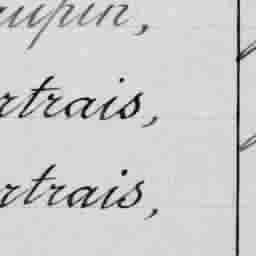 aupin,
rtrais,
rtrais,